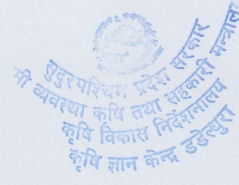 सुदूरपश्चिम प्रदेश सरकार
मी व्यवस्था कृषि तथा सहकारी मन्त्राल
कृषि विकास निर्देशनालय
कृषि ज्ञान केन्द्र डडेल्धुरा